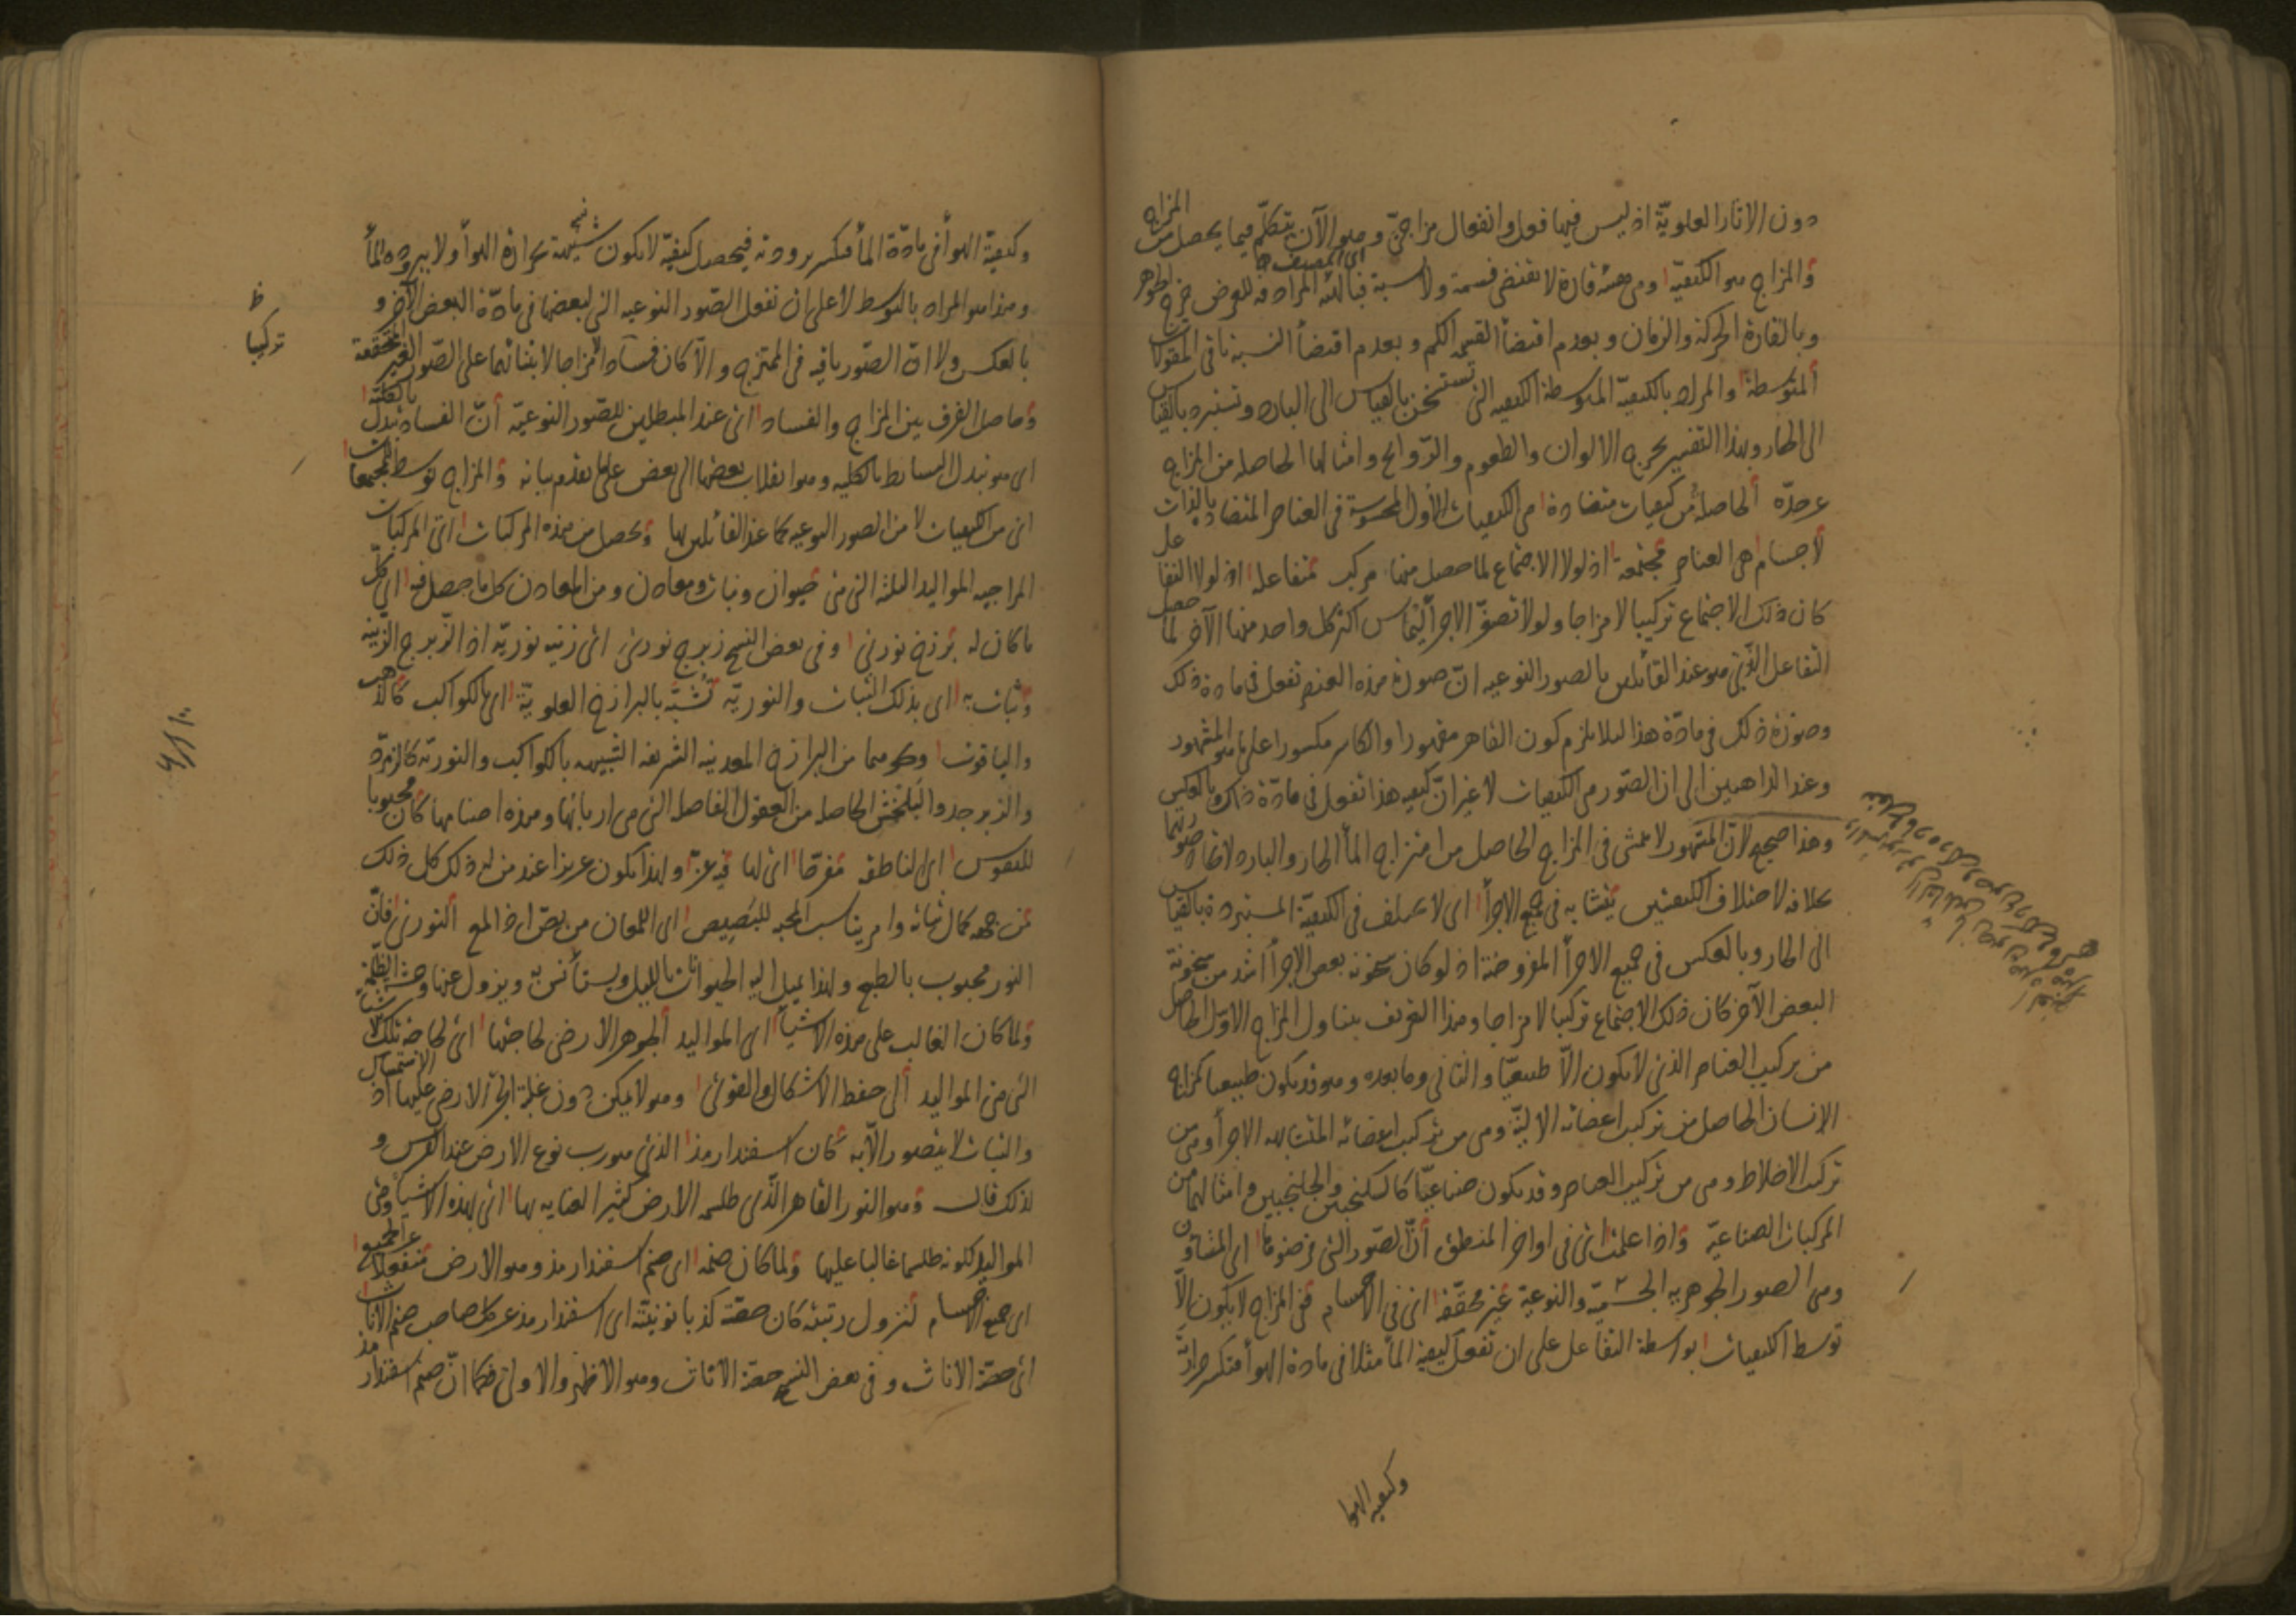 دون الاثار العلويّة اذ ليس فيها فعل وانفعال مزاجىّ وهو الآن يتكلّم فيما يحصل من المزاج
اى المصنف
والمزاج هو الكيفيّة وهى هيئة قارة لا تقتضى قسمة ولا نسبة فبالهيئة المراد به العرض خرج الجوهر
وبالقارة الحركة والزمان وبعدم اقتضأ القسمة الكم وبعدم اقتضأ النسبة باقى المقولات
المتوسطة والمراد بالكيفيّة المتوسطة الكيفيه التى تستسخن بالقياس الى البارد وتستبرد بالقياس
الى الحار وبهذا التفسير يخرج الالوان والطعوم والرّوائح وامثالها الحاصله من المزاج
عن حدّه الحاصلة من كيفيات متضادة هى الكيفيات الأول المحسوسة فى العناصر المتضادة بالذات
لاجسام هى العناصر مجتمعة اذ لولا الاجتماع لما حصل منها مركب متفاعلة اذ لولا التفاعل
كان ذلك الاجتماع تركيبا لا مزاجا ولولا تصغّر الاجزأ لتماس اكثر كل واحد منها الآخر لما حصل
التفاعل الذى هو عند القائلين بالصور النوعيه انّ صورة هذه العنصر تفعل فى مادة ذلك
وصورة ذلك فى مادّة هذا لئلا يلزم كون القاهر مقهورا والكاسر مكسورا على ما هو المشهور
وعند الذاهبين الى ان الصّور هى الكيفيات لا غير انّ كيفيه هذا تفعل فى مادّة ذاك وبالعكس
وهذا صحيح لانّ المشهور لا يتمشى فى المزاج الحاصل من امتزاج المأ الحار والبارد لاتحاد صورتهما
بخلافه لاختلاف الكيفيتين يتشابه فى جميع الاجزأ اى لا يختلف فى الكيفيّة المستبردة بالقياس
الى الحار وبالعكس فى جميع الاجزأ المفروضة اذ لو كان سخونة بعض الاجزأ اشد من سخونة
البعض الآخر كان ذلك الاجتماع تركيبا لا مزاجا وهذا التعريف يتناول المزاج الاوّل الحاصل
من تركيب العناصر الذى لا يكون الاّ طبيعيّا والثانى وما بعده وهو قد يكون طبيعيا كمزاج
الانسان الحاصل من تركيب اعضائه الاليّة وهى من تركيب اعضائه المتشابهه الاجزأ وهى من
تركيب الاخلاط وهى من تركيب العناصر وقد يكون صناعيّا كالسكنجبين والجلنجبين وامثالهما من
المركبات الصناعيّة واذا علمت اى فى اواخر المنطق أنّ الصّور التى فرضوها اى المشاؤن
وهى الصور الجوهريه الجسميّة والنوعية غير محقّقة اى فى الاجسام ففى المزاج لا يكون الاّ
توسط الكيفيات بواسطة التفاعل على ان تفعل كيفية المأ مثلا فى مادة الهوأ فتكسر حرارته
وكيفيه الهوا
وكيفيّة الهوأ فى مادّة المأ فتكسر برودته فيحصل كيفيّة لا يكون شبيهة بحرارة الهوأ ولا ببرودة المأ
وهذا هو المراد بالتوسط لا على ان تفعل الصّور النوعيه التى لبعضها فى مادّة البعض الآخر و
بالعكس ولا انّ الصّور باقيه فى الممتزج والاّ كان فسادا لا مزاجا لابتنائهما على الصّور الغير المحققة
ظ
تركيبا
وحاصل الفرق بين المزاج والفساد اى عند المبطلين للصّور النوعيّه أنّ الفساد تبدّل بالكلّيّة
اى هو تبدل البسائط بالكليه وهو انقلاب بعضها الى بعض على ما تقدم بيانه والمزاج توسط المجتمعات
اى من الكيفيات لا من الصور النوعيه كما عند القائلين بها ويحصل من هذه المركبات اى المركبات
المزاجيه المواليد الثلثة التى هى حيوان ونبات ومعادن ومن المعادن كل ما حصل فيه اى كلّ
ما كان له برزخ نورىّ وفى بعض النسخ زبرج نورىّ اى زينه نوريّة اذ الزّبرج الزّينه
وثبات به اى بذلك الثبات والنوريّه تشبّه بالبرازخ العلويّة اى الكواكب كالذهب
والياقوت ونحوهما من البرازخ المعدنيه الشريفه الشبيهه بالكواكب والنوريّه كالزمرّد
والزبرجد والبلخش الحاصله من العقول الفاضله التى هى اربابها وهذه اصنامها كان محبوبا
للنفوس اى الناطقه مفرّحا اى لها فيه عزّ ولهذا يكون عزيزا عند من له ذلك كل ذلك
من جهه كمال ثباته وامر يناسب المحبه للبصيص اى اللمعان من بصّ اذا لمع النورىّ فانّ
النور محبوب بالطبع ولهذا يميل اليه الحيوانات بالليل ويستأنس به ويزول عنها وحشة الظّلمة
ولما كان الغالب على هذه الاشيأ اى المواليد الجوهر الأرضى لحاجتها اى لحاجة تلك الاشيأ
التى هى المواليد الى حفظ الاشكال والقوى وهو لا يمكن دون غلبة الجزأ الارضى عليها اذ الاستمساك
والثبات لا يتصور الاّ به كان اسفندارمذ الذى هو رب نوع الارض عند الفرس و
لذلك قال وهو النور القاهر الذى طلسمه الارض كثير العنايه بها اى بهذه الاشيأ وهى
المواليد لكونه طلسما غالبا عليها ولما كان صنمه اى صنم اسفندارمذ وهو الارض منفعلا عن الجميع
اى جميع الاجسام لنزول رتبته كان حصّته كذبانوئيته اى اسفندارمذ عن كل صاحب صنم الاناث
اى حصّة الاناث وفى بعض النسخ حصّة الاناث وهو الاظهر والاولى فكما انّ صنم اسفندارمذ